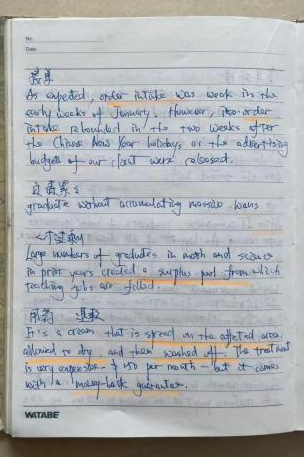 No.
Date
As expected, order intake was weak in the
early weeks of January. However, order
intake rebounded in the two weeks after
the Chinese New Year holiday, as the advertising
budgets of our client were released.
graduate without accumulating massive loans
Large numbers of graduates in math and science
in prior years created a surplus pool from which
teaching jobs are filled.
It's a cream that is spread on the affected area,
allowed to dry, and then washed off. The treatment
is very expensive - $ 150 per month - but it comes
with a money-back guarantee.
WATABE